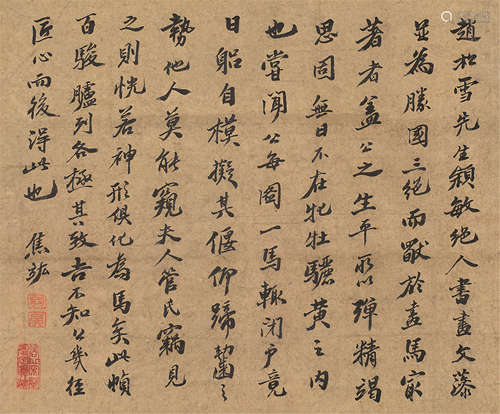 趙松雪先生穎敏絕人書畫文藻
並為勝國三絕而獸於畫馬家
著者蓋公之生平所以彈精竭
思固無日不在牝牡驪黃之内
也嘗聞公每圖一馬輒閉戶竟
日躬自模擬其偃仰蹄齧之
勢他人莫能窺夫人管氏竊見
之則恍若神形俱化為馬矣此幀
百駿臚列各極其致吉不知公幾經
匠心而後得此也 焦竑